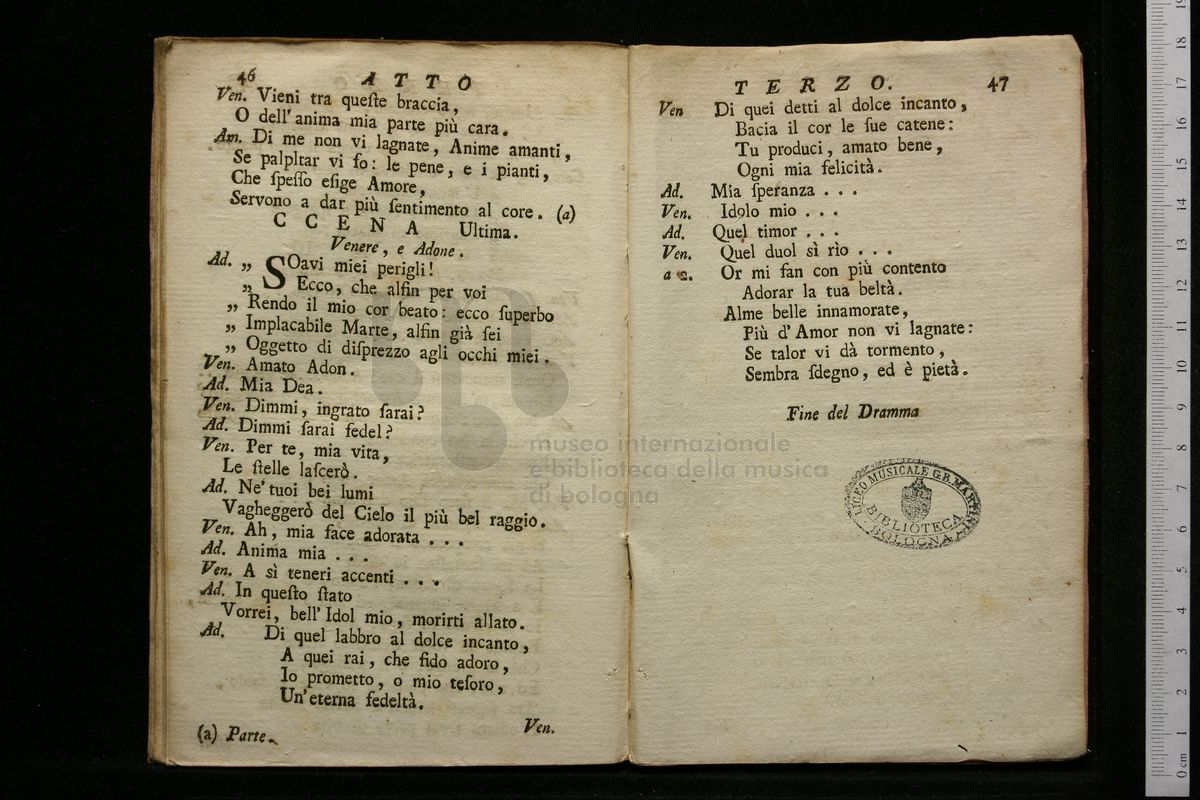 46 ATTO
Ven. Vieni tra queſte braccia,
O dell'anima mia parte più cara.
Am. Di me non vi lagnate, Anime amanti,
Se palpltar vi fo: le pene, e i pianti,
Che ſpeſſo eſige Amore,
Servono a dar più ſentimento al core. (a)
CCENA Ultima.
Venere, e Adone.
Ad. „ SOavi miei perigli!
„ Ecco, che alfin per voi
„ Rendo il mio cor beato: ecco ſuperbo
„ Implacabile Marte, alfin già ſei
„ Oggetto di diſprezzo agli occhi miei.
Ven. Amato Adon.
Ad. Mia Dea.
Ven. Dimmi, ingrato ſarai?
Ad. Dimmi ſarai fedel?
Ven. Per te, mia vita,
Le ſtelle laſcerò.
Ad. Ne' tuoi bei lumi
Vagheggerò del Cielo il più bel raggio.
Ven. Ah, mia face adorata . . .
Ad. Anima mia . . .
Ven. A sì teneri accenti . . .
Ad. In queſto ſtato
Vorrei, bell' Idol mio, morirti allato.
Ad. Di quel labbro al dolce incanto,
A quei rai, che fido adoro,
Io prometto, o mio teſoro,
Un'eterna fedeltà.
Ven.
(a) Parte.
TERZO. 47
Ven Di quei detti al dolce incanto,
Bacia il cor le ſue catene:
Tu produci, amato bene,
Ogni mia felicità.
Ad. Mia ſperanza . . .
Ven. Idolo mio . . .
Ad. Quel timor . . .
Ven. Quel duol sì rìo . . .
a 2. Or mi fan con più contento
Adorar la tua beltà.
Alme belle innamorate,
Più d'Amor non vi lagnate:
Se talor vi dà tormento,
Sembra ſdegno, ed è pietà.
Fine del Dramma
LICEO MUSICALE G.B. MARTINI
BIBLIOTECA
BOLOGNA
museo internazionale
e biblioteca della musica
di bologna
0 cm 1 2 3 4 5 6 7 8 9 10 11 12 13 14 15 16 17 18 19